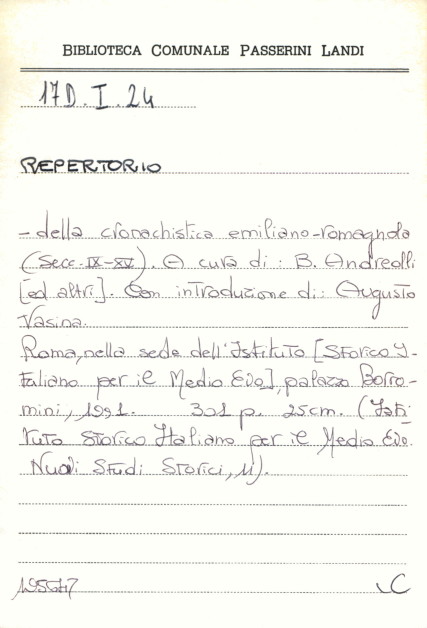 BIBLIOTECA COMUNALE PASSERINI LANDI
17D. I. 24
REPERTORIO
- della cronachistica emiliano-romagnola
(secc. IX-XV). A cura di: B. Andreolli
[ed altri]. Con introduzione di: Augusto
Vasina.
Roma, nella sede dell'Istituto [Storico I-
taliano per il Medio Evo], palazzo Borro-
mini, 1991. 301 p. 25cm. (Isti-
tuto Storico Italiano per il Medio Evo.
Nuovi Studi Storici, 11).
C